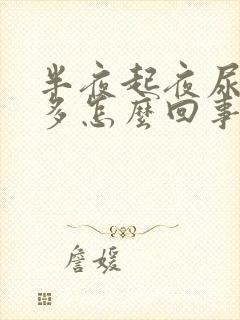 半夜起夜尿
多怎麼回事
詹媛